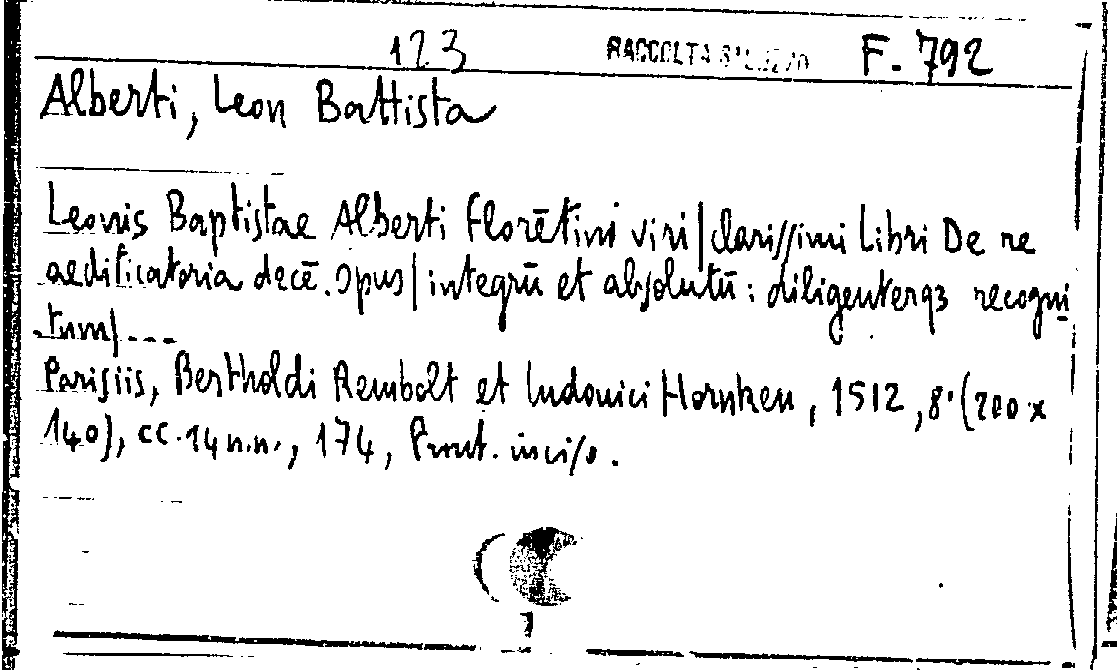 123 RACCOLTA F. 792
Alberti, Leon Battista
Leonis Baptistae Alberti florētini viri|clarissimi Libri De re
aedificatoria decē. Opus|integrū et absolutū: diligenterqꝫ recogni
tum|---
Parisiis, Bertholdi Rembolt et Ludouici Hornken, 1512, 8° (200 x
140), cc. 14 n.n., 174, Front. inciso.